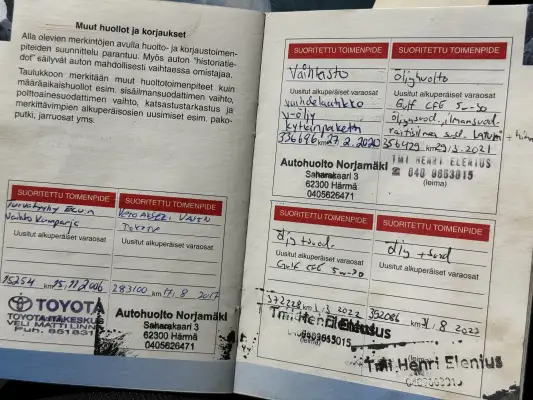 Muut huollot ja korjaukset
Alla olevien merkintöjen avulla huolto- ja korjaustoimen-
piteiden suunnittelu parantuu. Myös auton "historiatie-
dot" säilyvät auton mahdollisesti vaihtaessa omistajaa.
Taulukkoon merkitään muut huoltotoimenpiteet kuin
määräaikaishuollot esim. sisäilmansuodattimen vaihto,
polttoainesuodattimen vaihto, katsastustarkastus ja
merkittävimpien alkuperäisosien uusimiset esim. pako-
putki, jarruosat yms.
SUORITETTU TOIMENPIDE
Vaihto kampanja
Uusitut alkuperäiset varaosat
75254 km 15.11.2006
TOYOTA
VELI MATTI LINN
Puh.
SUORITETTU TOIMENPIDE
Uusitut alkuperäiset varaosat
283100 km 17.8 2017
Autohuolto Norjamäki
Saharakaari 3
62300 Härmä
0405626471
SUORITETTU TOIMENPIDE
Vaihtasto
Uusitut alkuperäiset varaosat
vaihdelaatikko
v-öljy
kytkinpaketti
356646 km 27.2.2020
Autohuolto Norjamäki
62300 Härmä
0405626471
SUORITETTU TOIMENPIDE
öljyhuolto
Uusitut alkuperäiset varaosat
Gulf CFE 5w-30
öljynsuod, ilmansuod
356429 km 29.3.2021
TMI HENRI ELENIUS
☎ 040 9653015
(leima)
SUORITETTU TOIMENPIDE
öljy+suod.
Uusitut alkuperäiset varaosat
Gulf CFE 5w-30
372228 km 2022
Tmi Henri Elenius
(leima)
SUORITETTU TOIMENPIDE
öljy + suod
Uusitut alkuperäiset varaosat
392086 km 31.8.2023
Tmi Henri Elenius
(leima)